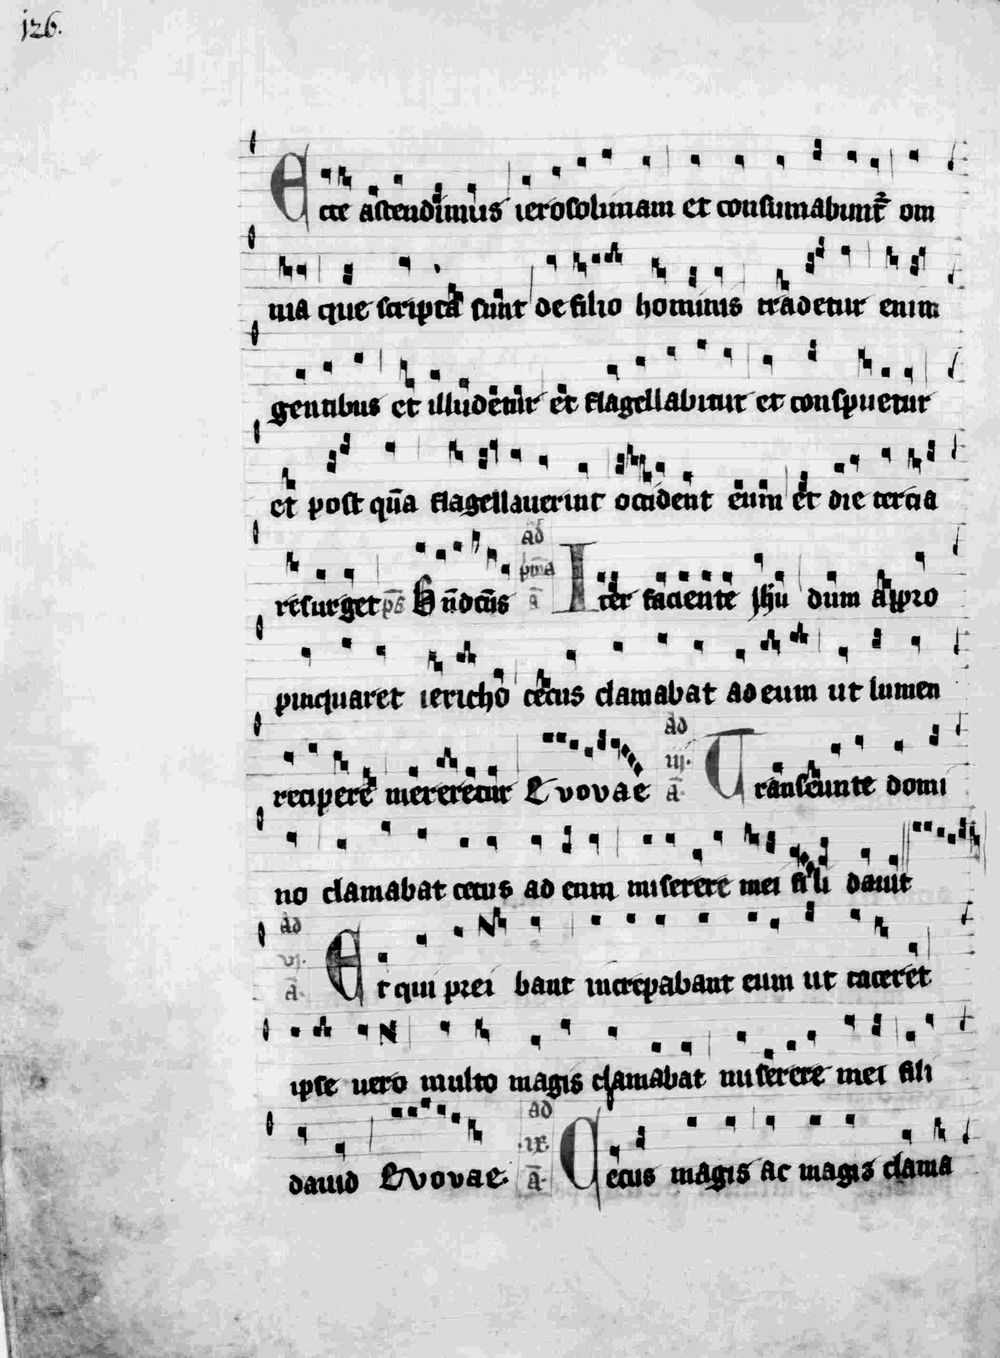 126.
Ecce ascendimus ierosolimam et consumabunt᷑ om
nia que scripta sunt de filio hominis tradetur enim
gentibus et illudetur et flagellabitur et conspuetur
et post qua̅ flagellauerint occident eum et die tercia
resurget ps̅ Bn̅dcu̅s ad pm̅a a̅ Iter faciente Jhu̅ dum appro
pinquaret iericho cecus clamabat ad eum ut lumen
recipere mereretur Evovae ad iij. a̅ Transeunte domi
no clamabat cecus ad eum miserere mei fili dauit
ad vj. a̅ Et qui prei bant increpabant eum ut taceret
ipse uero multo magis clamabat miserere mei fili
dauid Evovae ad ix. a̅ Cecus magis ac magis clama